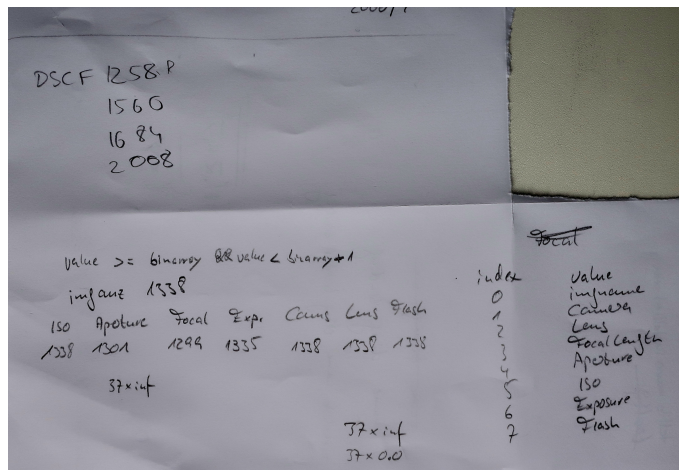 DSCF 1258 P
1560
1684
2008
Focal
value >= binarray && value < binarray+1
imganz 1338
ISO Aperture Focal Expr. Cams Lens Flash
1338 1301 1299 1335 1338 1338 1338
37 x inf
37 x inf
37 x 0.0
index value
0 imgname
1 Camera
2 Lens
3 Focal Length
4 Aperture
5 ISO
6 Exposure
7 Flash